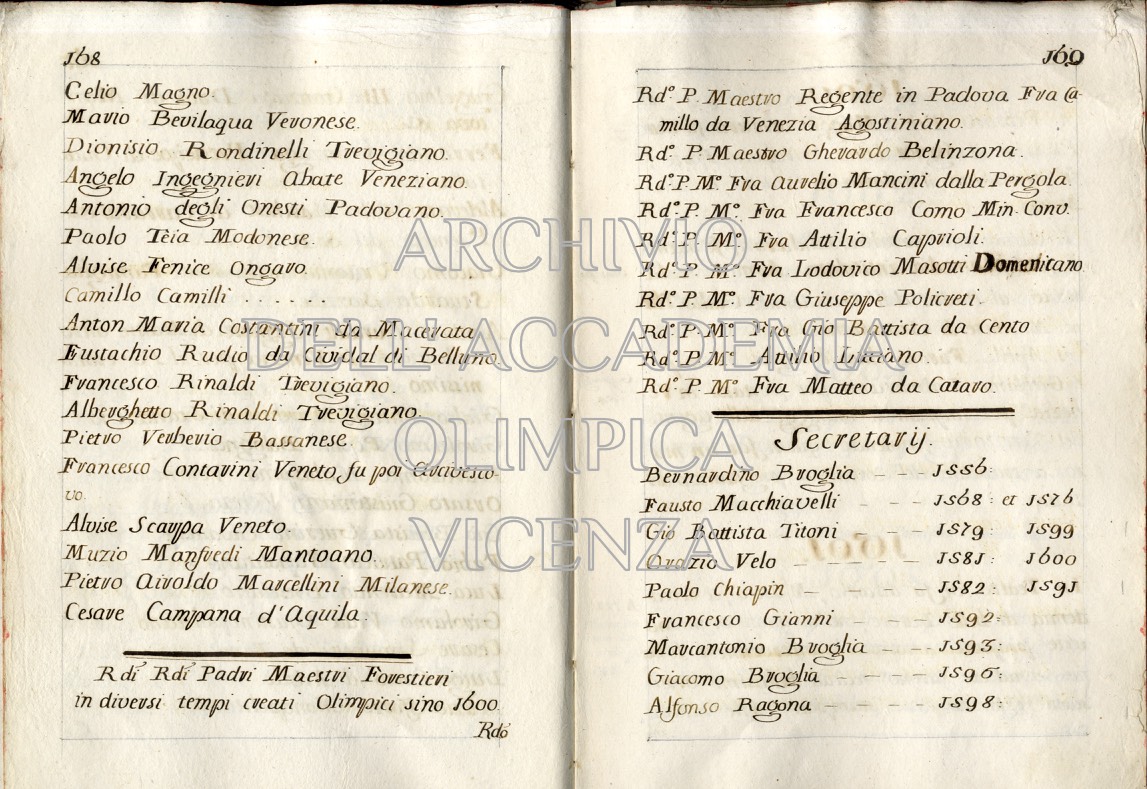 168
Celio Magno.
Mario Bevilaqua Veronese.
Dionisio Rondinelli Trevigiano.
Angelo Ingegnieri Abate Veneziano.
Antonio degli Onesti Padovano.
Paolo Teia Modonese.
Alvise Fenice Ongaro.
Camillo Camilli . . . .
Anton Maria Costantini da Macerata
Eustachio Rudio da Cividal di Belluno.
Francesco Rinaldi Trevigiano.
Alberghetto Rinaldi Trevigiano.
Pietro Verherio Bassanese.
Francesco Contarini Veneto, fu poi Arcivesco-
vo.
Alvise Scarpa Veneto.
Muzio Manfredi Mantoano.
Pietro Airoldo Marcellini Milanese.
Cesare Campana d'Aquila.
Rdi Rdi Padri Maestri Forestieri
in diversi tempi creati Olimpici sino 1600.
Rdo
169
Rdo. P. Maestro Regente in Padova Fra Ca-
millo da Venezia Agostiniano.
Rdo. P. Maestro Gherardo Belinzona.
Rdo. P. Mo. Fra Aurelio Mancini dalla Pergola.
Rdo. P. Mo. Fra Francesco Como Min. Conv.
Rdo. P. Mo. Fra Attilio Caprioli.
Rdo. P. Mo. Fra Lodovico Masotti Domenicano.
Rdo. P. Mo. Fra Giuseppe Policreti.
Rdo. P. Mo. Fra Gio Battista da Cento
Rdo. P. Mo. Attilio Luciano
Rdo. P. Mo. Fra Matteo da Cataro.
Secretarij.
Bernardino Broglia - - 1556:
Fausto Macchiavelli - - 1568: et 1576
Gio Battista Titoni - - 1579: 1599
Orazio Velo - - - - 1581: 1600
Paolo Chiapin - - - - 1582: 1591
Francesco Gianni - - - 1592:
Marcantonio Broglia - - 1593:
Giacomo Broglia - - - - 1596:
Alfonso Ragona - - - - 1598:
ARCHIVIO
DELL'ACCADEMIA
OLIMPICA
VICENZA